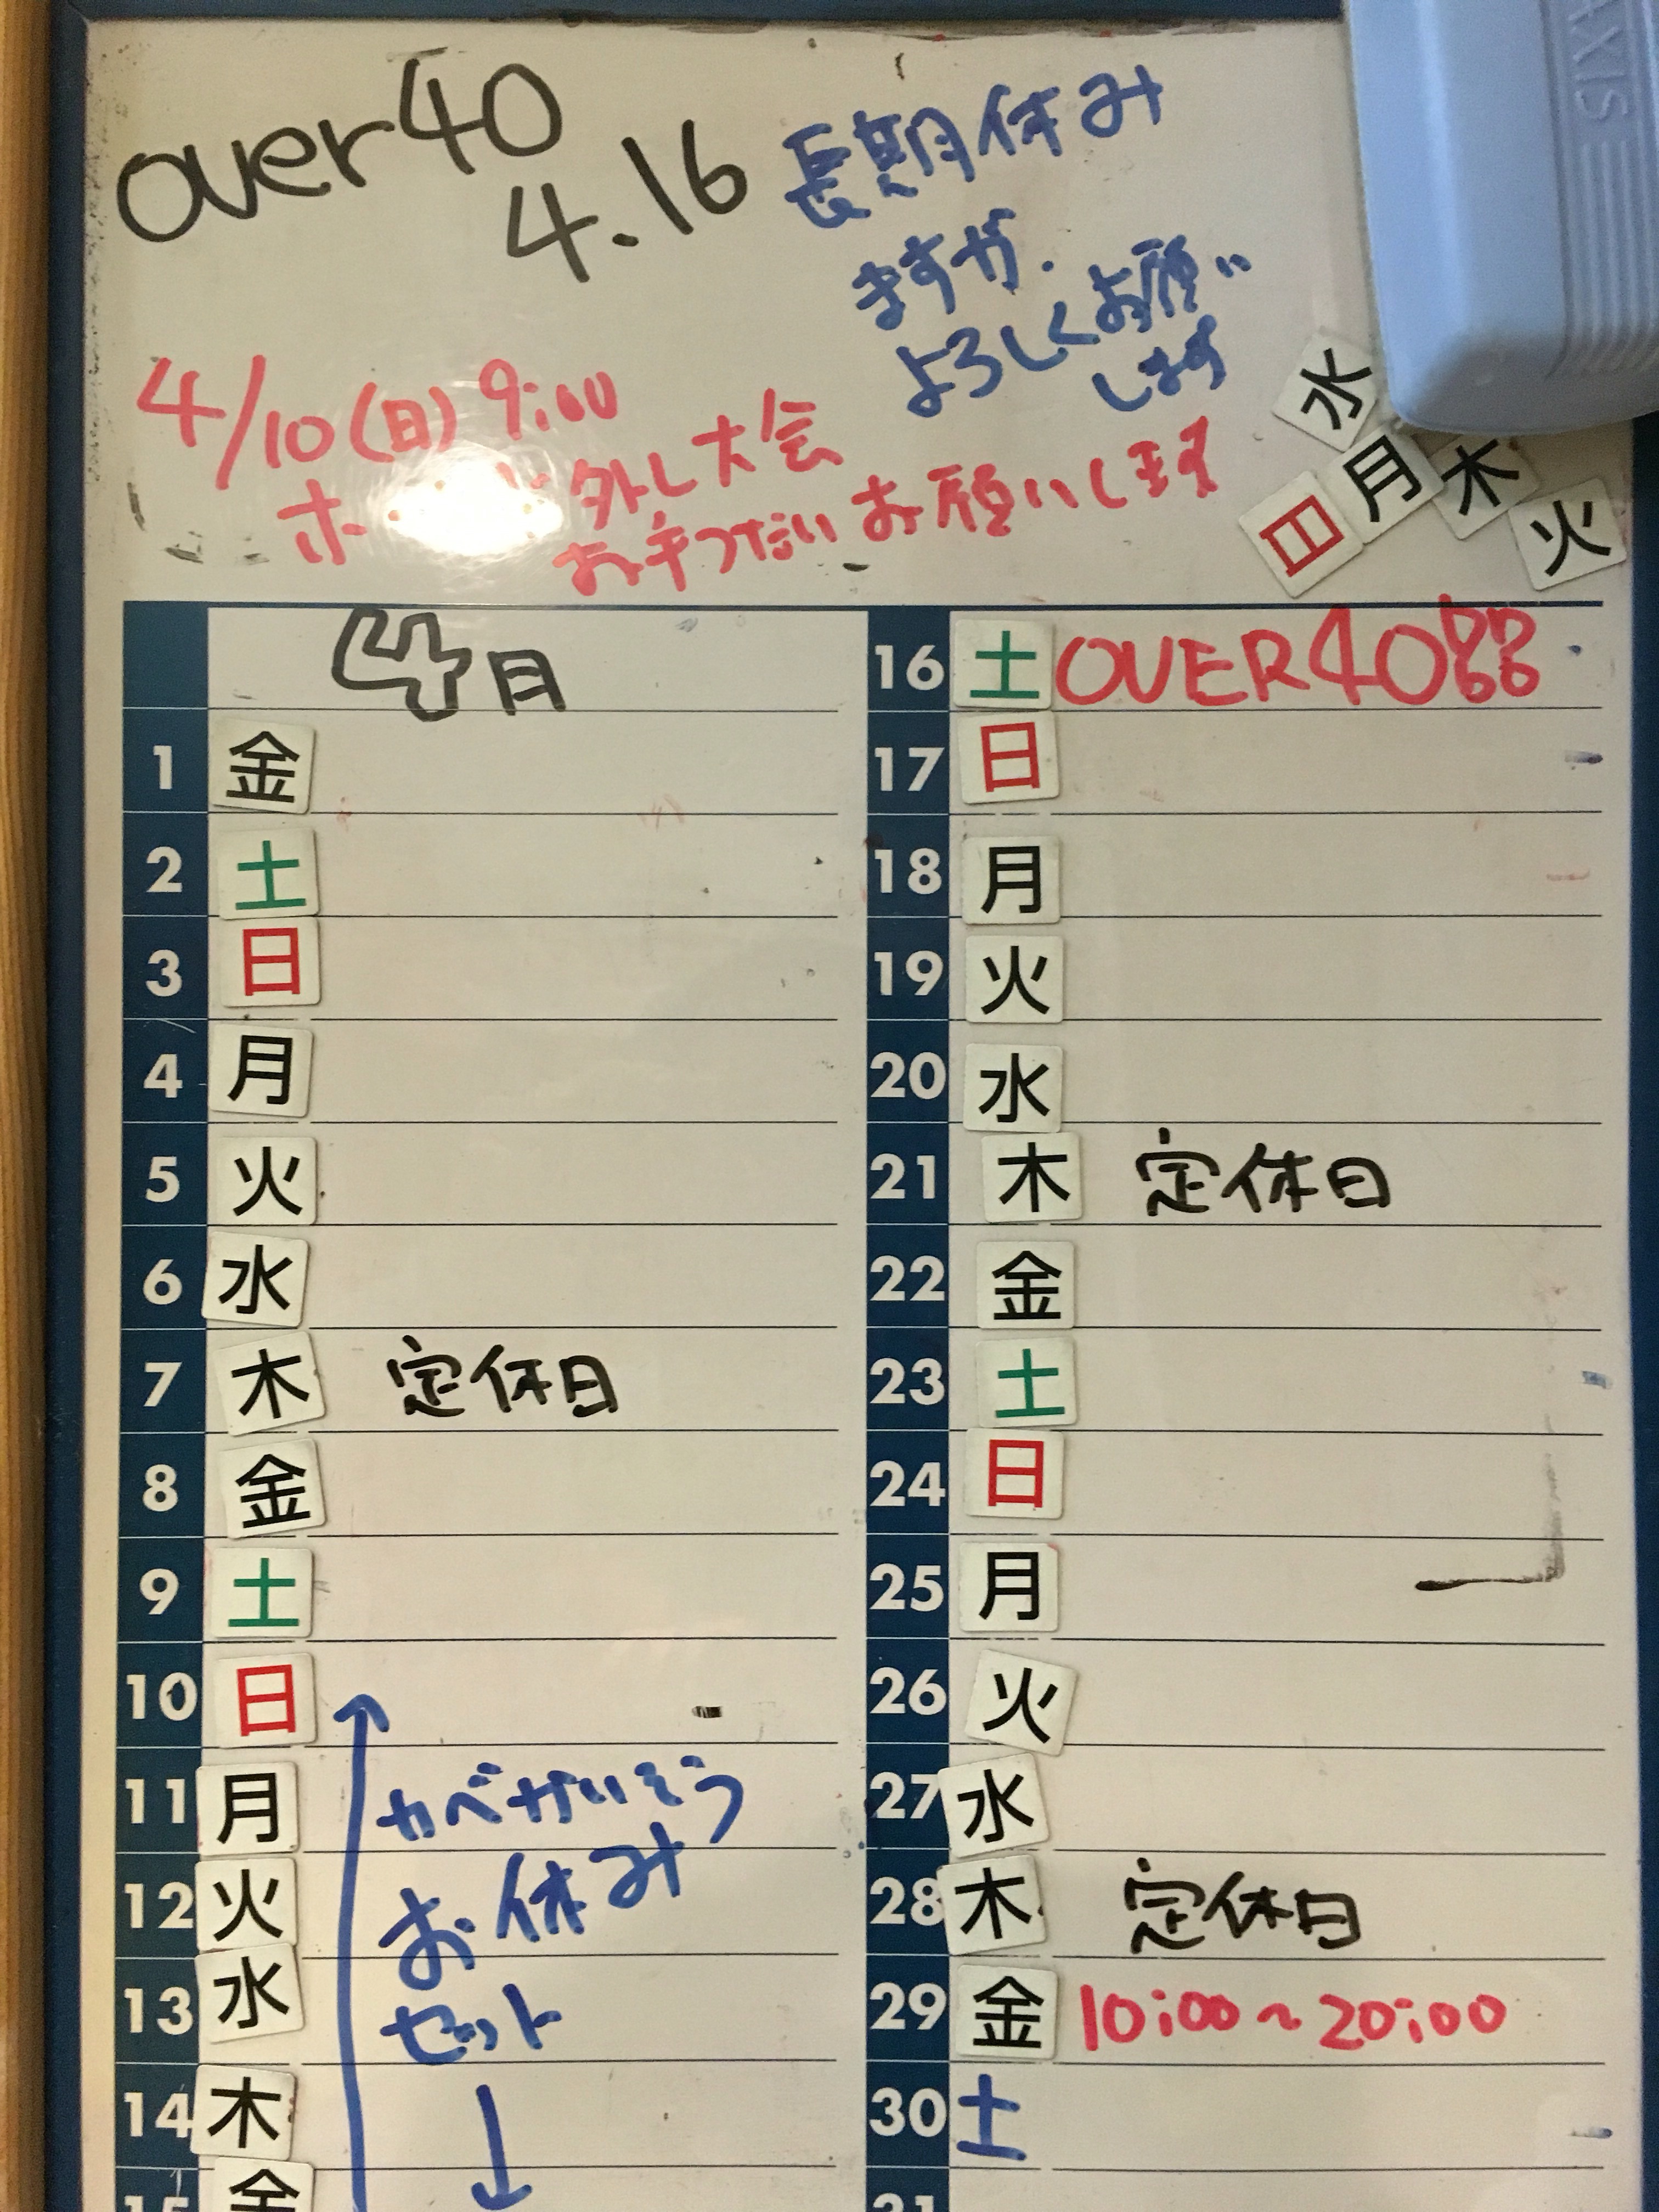 AXIS
over40
4.16
長期休み
ますが.
よろしくお願い
します
4/10(日) 9:00
ホ 外し大会
お手つだいお願いします
水
日 月 木 火
4月
1 金
2 土
3 日
4 月
5 火
6 水
7 木 定休日
8 金
9 土
10 日
11 月 カベかいそう
12 火 お休み
13 水 セット
14 木
15 金
16 土 OVER40
17 日
18 月
19 火
20 水
21 木 定休日
22 金
23 土
24 日
25 月
26 火
27 水
28 木 定休日
29 金 10:00~20:00
30 土
31